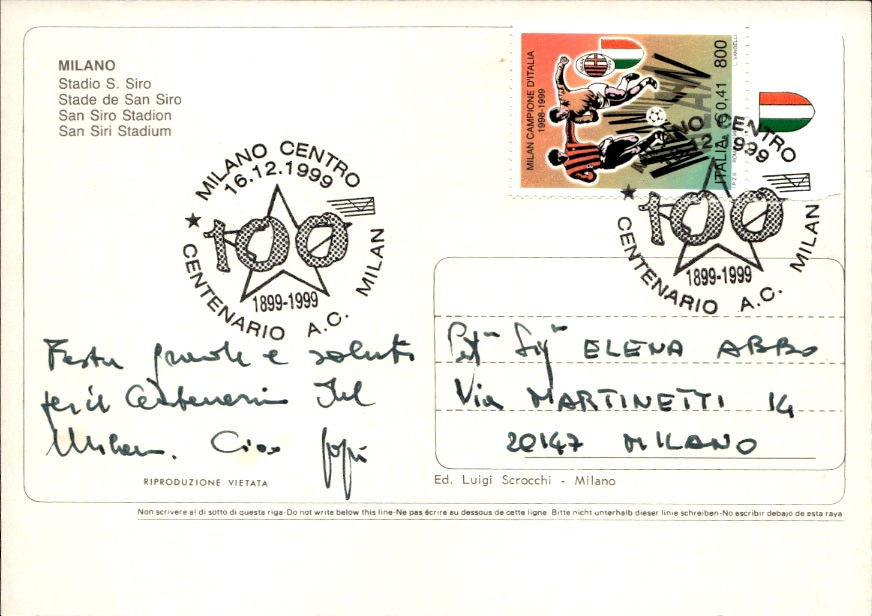 MILANO
Stadio S. Siro
Stade de San Siro
San Siro Stadion
San Siri Stadium
MILANO CENTRO
16.12.1999
100
1899-1999
CENTENARIO A.C. MILAN
MILAN CAMPIONE D'ITALIA
1998-1999
MILAN
ITALIA € 0,41 800
MILANO CENTRO
12.1999
100
1899-1999
CENTENARIO A.C. MILAN
Festa grande e saluti
per il Centenario del
Milan. Ciao
ELENA ABBO
Via MARTINETTI 14
20147 MILANO
RIPRODUZIONE VIETATA
Ed. Luigi Scrocchi - Milano
Non scrivere al di sotto di questa riga-Do not write below this line-Ne pas écrire au dessous de cette ligne Bitte nicht unterhalb dieser linie schreiben-No escribir debajo de esta raya